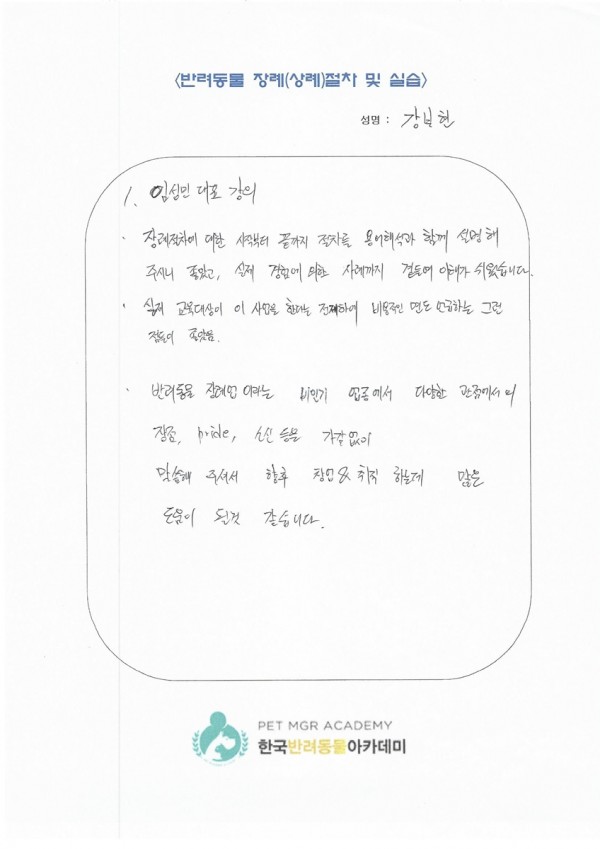 <반려동물 장례(상례)절차 및 실습>
성명 : 강보현
1. 임성민 대표 강의
· 장례절차에 대한 시작부터 끝까지 절차를 용어해석과 함께 설명해
주시니 좋았고, 실제 경험에 의한 사례까지 곁들여 이해가 쉬웠습니다.
· 실제 교육대상이 이 사업을 한다는 전제하에 비용적인 면도 언급하는 그런
점들이 좋았음.
· 반려동물 장례업 이라는 비인기 업종에서 다양한 관점에서의
장점, pride, 소신 등을 가감없이
말씀해 주셔서 향후 창업 & 취직 하는데 많은
도움이 된것 같습니다.
PET MGR ACADEMY
한국반려동물아카데미